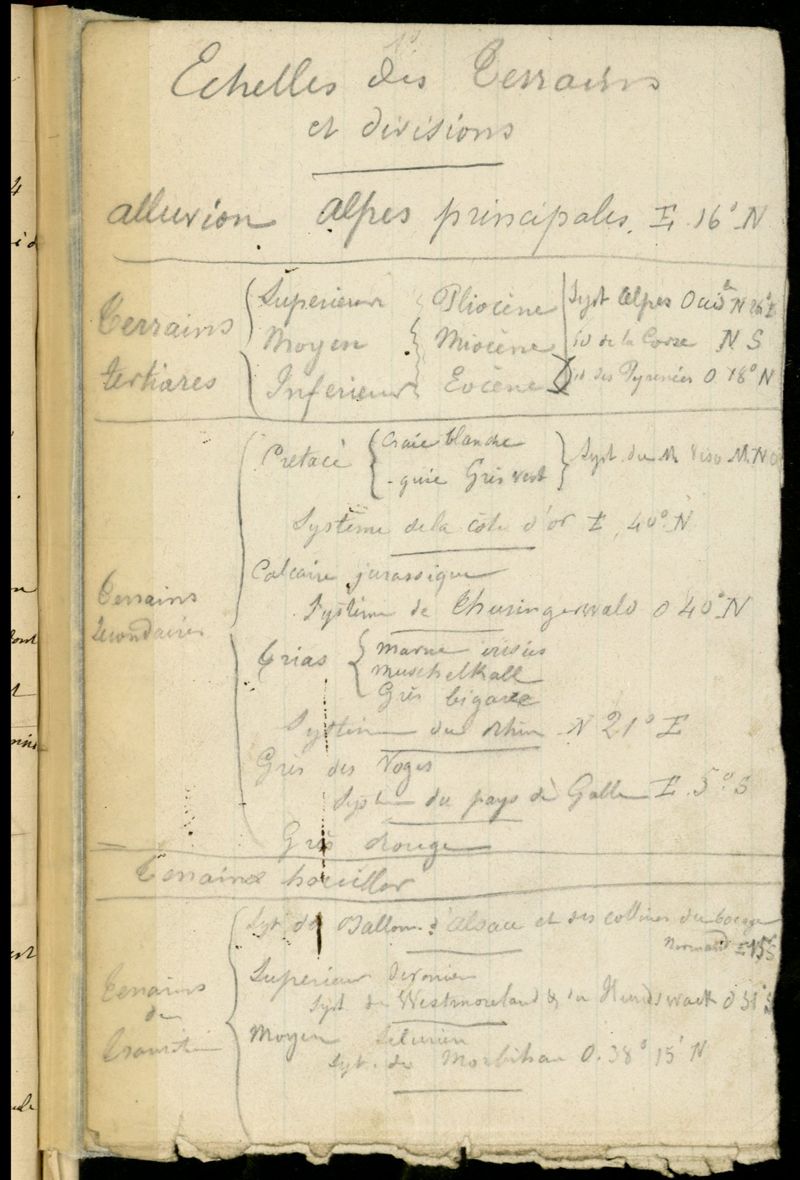 Echelles des Terrains
et divisions
alluvion alpes principales. E. 16° N
Terrains tertiares
Superieur Pliocène Syst Alpes Occid N 26° E
Moyen Miocène id de la Corse N S
Inferieur Eocène id des Pyrenées O 18° N
Terrains secondaires
Cretacé craie blanche
Syst. du M Viso N.N O
Grès vert
Système de la côte d'or E. 40° N
Calcaire jurassique
Système de Thuringerwald O 40° N
Trias
marne irisées
muschelkall
Grès bigarre
Système du Rhin N 21° E
Grès des Voges
Syst du pays de Galle E. 5° S
Grès Rouge
Terrains houiller
Syt des Ballons d'Alsace et des collines du bocage
Normand E 15° S
Terrains de Transition
Superieur devonien
Syst du Westmoreland & du Hundsruck O 31° S
Moyen Silurien
Syt. du Morbihan O. 38° 15' N